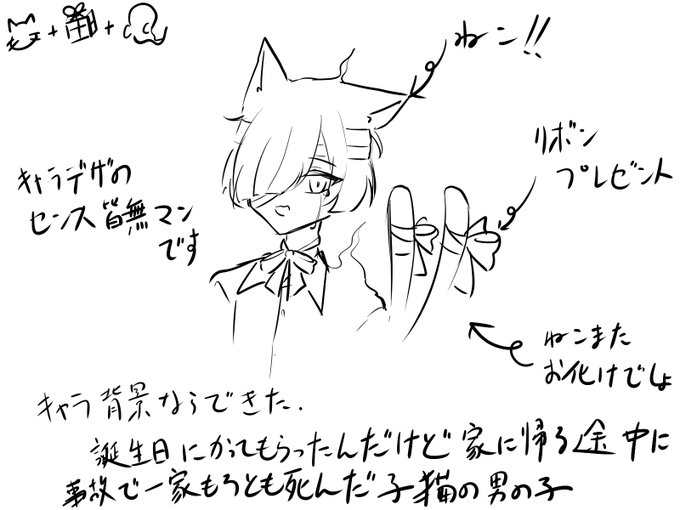 ねこ!!
リボン
プレゼント
キャラデザの
センス皆無マン
です
ねこまた
お化けでしょ
キャラ背景ならできた.
誕生日にかってもらったんだけど家に帰る途中に
事故で一家もろとも死んだ子猫の男の子